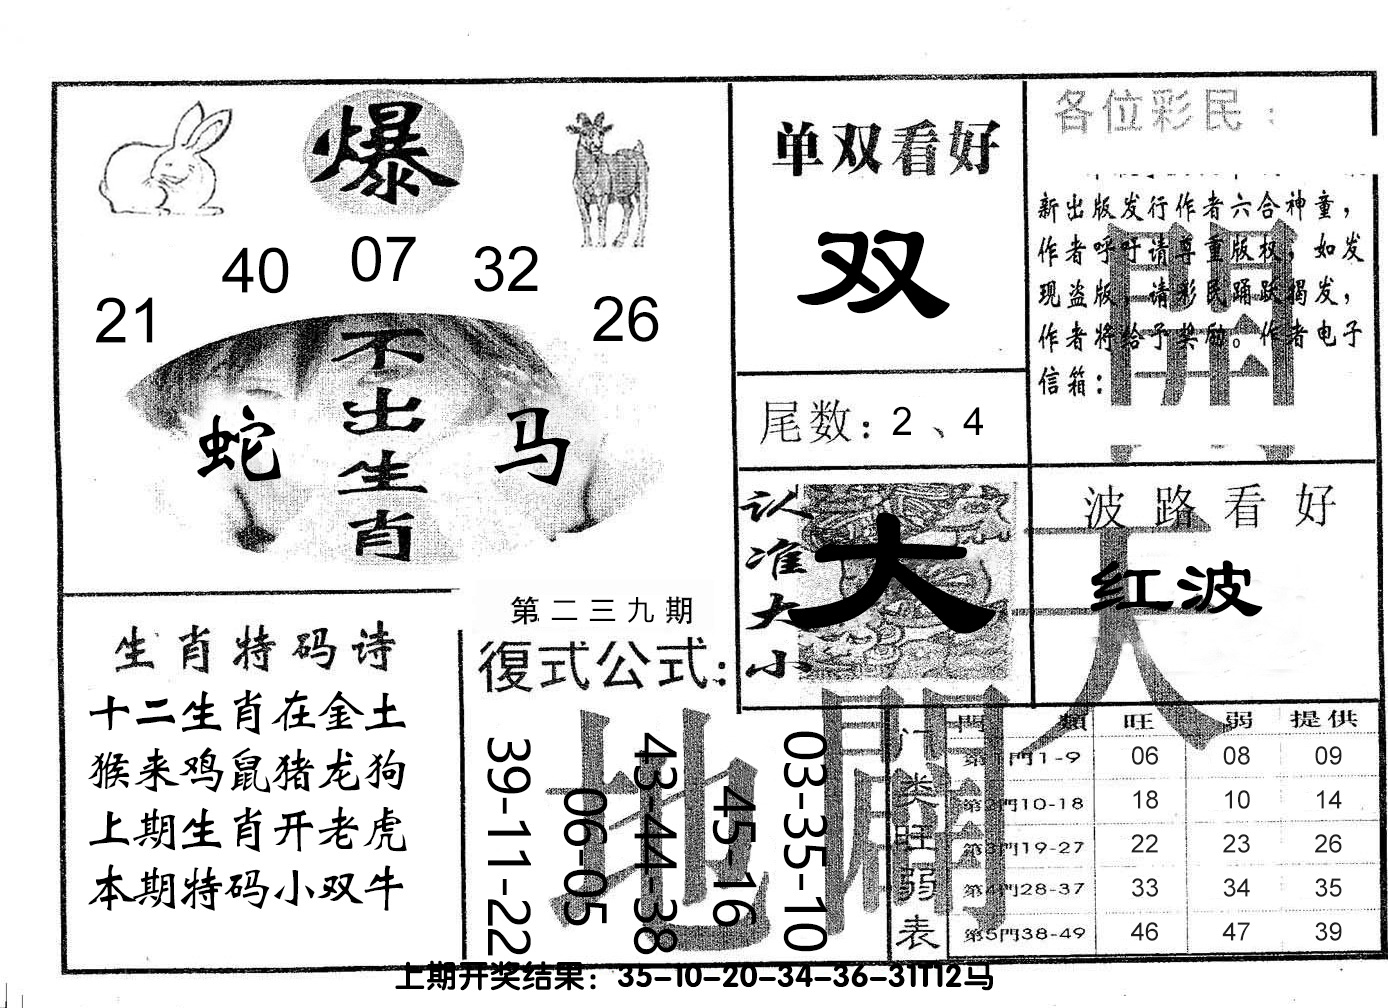 爆
21 40 07 32 26
不出生肖
蛇 马
生肖特码诗
十二生肖在金土
猴来鸡鼠猪龙狗
上期生肖开老虎
本期特码小双牛
第二三九期
復式公式:
39-11-22
06-05
43-44-38
45-16
03-35-10
单双看好
双
尾数: 2 、4
认准大小
大
各位彩民:
新出版发行作者六合神童,
作者呼吁请尊重版权,如发
现盗版,请彩民踊跃揭发,
作者将给予奖励。作者电子
信箱:
波路看好
红波
天
地
開
門类旺弱表
門 類 旺 弱 提供
第1門1-9 06 08 09
第2門10-18 18 10 14
第3門19-27 22 23 26
第4門28-37 33 34 35
第5門38-49 46 47 39
上期开奖结果:35-10-20-34-36-31T12马